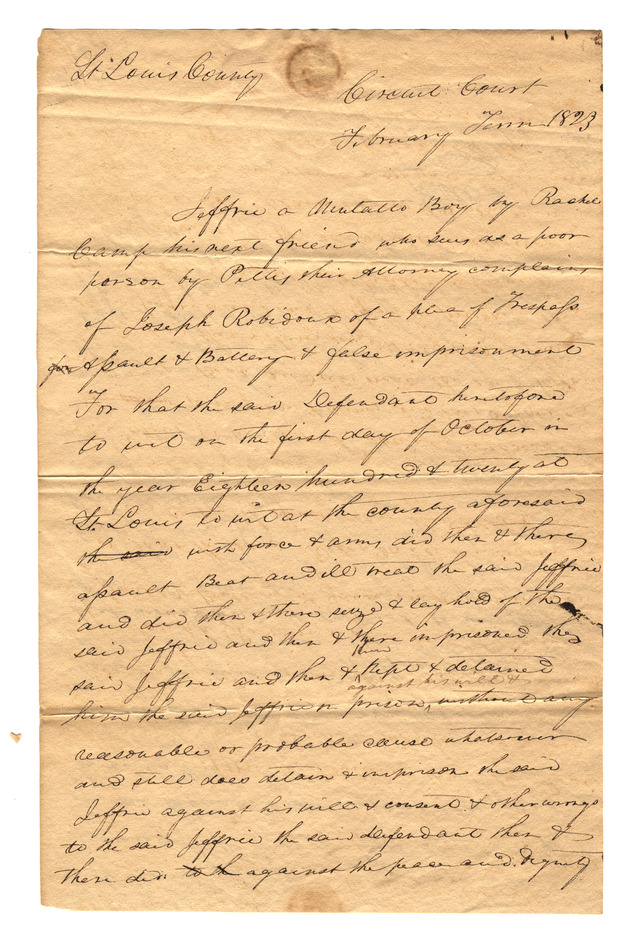 St Louis County
Circuit Court
February Term 1823
Jeffrie a Mulatto Boy by Rachel
Camp his next friend who sues as a poor
person by Pettis their Attorney complains
of Joseph Robidoux of a plea of Trespass
for Assault & Battery & false imprisonment
For that the said Defendant heretofore
to wit on the first day of October in
the year Eighteen hundred & twenty at
St. Louis to wit at the county aforesaid
the said with force & arms did then & there
assault Beat and ill treat the said Jeffrie
and did then & there seize & lay hold of the
said Jeffrie and then & there imprisoned the
said Jeffrie and then & there kept & detained
against his will &
him the said Jeffrie in prison, without any
reasonable or probable cause whatsoever
and still does detain & imprison the said
Jeffrie against his will & consent & other wrongs
to the said Jeffrie the said defendant then &
there did to th against the peace and dignity